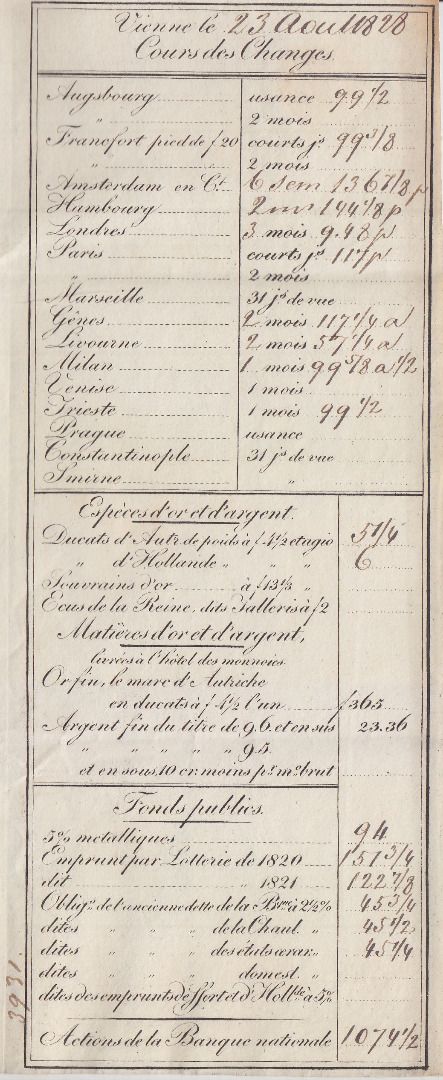 Vienne le 23 Aout 1828
Cours des Changes.
Augsbourg usance 99 1/2
" 2 mois
Francfort pied de f 20 courts js 99 3/8
" 2 mois
Amsterdam en Ct. 6 sem 136 7/8 p
Hambourg 2 m 144 1/8 p
Londres 3 mois 9.48 p
Paris courts js 117 p
" 2 mois
Marseille 31 js de vue
Gênes 2 mois 117 1/4 a
Livourne 2 mois 57 1/4 a
Milan 1 mois 99 5/8 a 1/2
Venise 1 mois
Trieste 1 mois 99 1/2
Prague usance
Constantinople 31 js de vue
Smirne "
Espèces d'or et d'argent.
Ducats d'Autr. de poids à f 4 1/2 et agio 5 1/4
" d'Hollande " " " 6
Souvrains d'or à f 13 1/3 "
Ecus de la Reine, dits Talleris à f 2
Matières d'or et d'argent,
livrées à l'hôtel des monnoies
Or fin, le marc d'Autriche
en ducats à f 4 1/2 l'un f 365
Argent fin du titre de 9.6. et en sus 23.36
" " " " " 9.5.
et en sous, 10 cr. moins pr. mc. brut
Fonds publics.
5% metalliques 94
Emprunt par Lotterie de 1820 151 3/4
dit " 1821 122 7/8
Obligs. de l'ancienne dette de la Bque à 2 1/2 % 45 3/4
dites " " " de la Chanl. " 45 1/2
dites " " " des états aerar. " 45 1/4
dites " " " domest. "
dites des emprunts de et d'Hollde à 5 %
Actions de la Banque nationale 1074 1/2
3931.